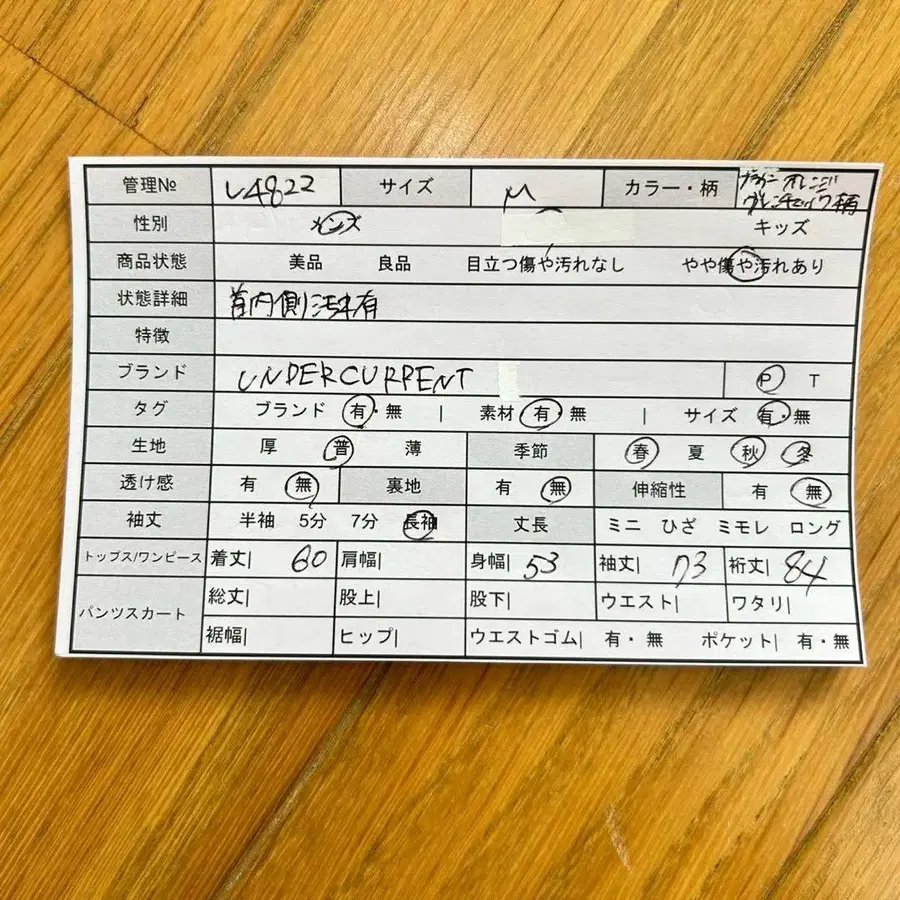 管理№ L4822 サイズ M カラー・柄 ブラウン オレンジ
グレンチェック柄
性別 メンズ キッズ
商品状態 美品 良品 目立つ傷や汚れなし やや傷や汚れあり
状態詳細 首内側汚れ有
特徴
ブランド UNDERCURRENT P T
タグ ブランド 有・無 | 素材 有・無 | サイズ 有・無
生地 厚 普 薄 季節 春 夏 秋 冬
透け感 有 無 裏地 有 無 伸縮性 有 無
袖丈 半袖 5分 7分 長袖 丈長 ミニ ひざ ミモレ ロング
トップス/ワンピース 着丈| 60 肩幅| 身幅| 53 袖丈| 73 裄丈| 84
パンツスカート 総丈| 股上| 股下| ウエスト| ワタリ|
裾幅| ヒップ| ウエストゴム| 有・無 ポケット| 有・無